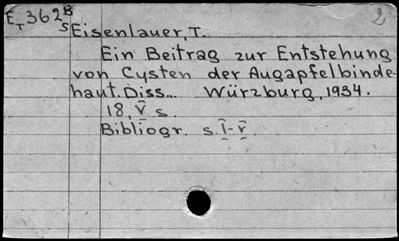 E362B 2
T S Eisenlauer, T.
Ein Beitrag zur Entstehung
von Cysten der Augapfelbinde-
haut. Diss... Würzburg, 1934.
18, V s.
Bibliogr. s. I-V